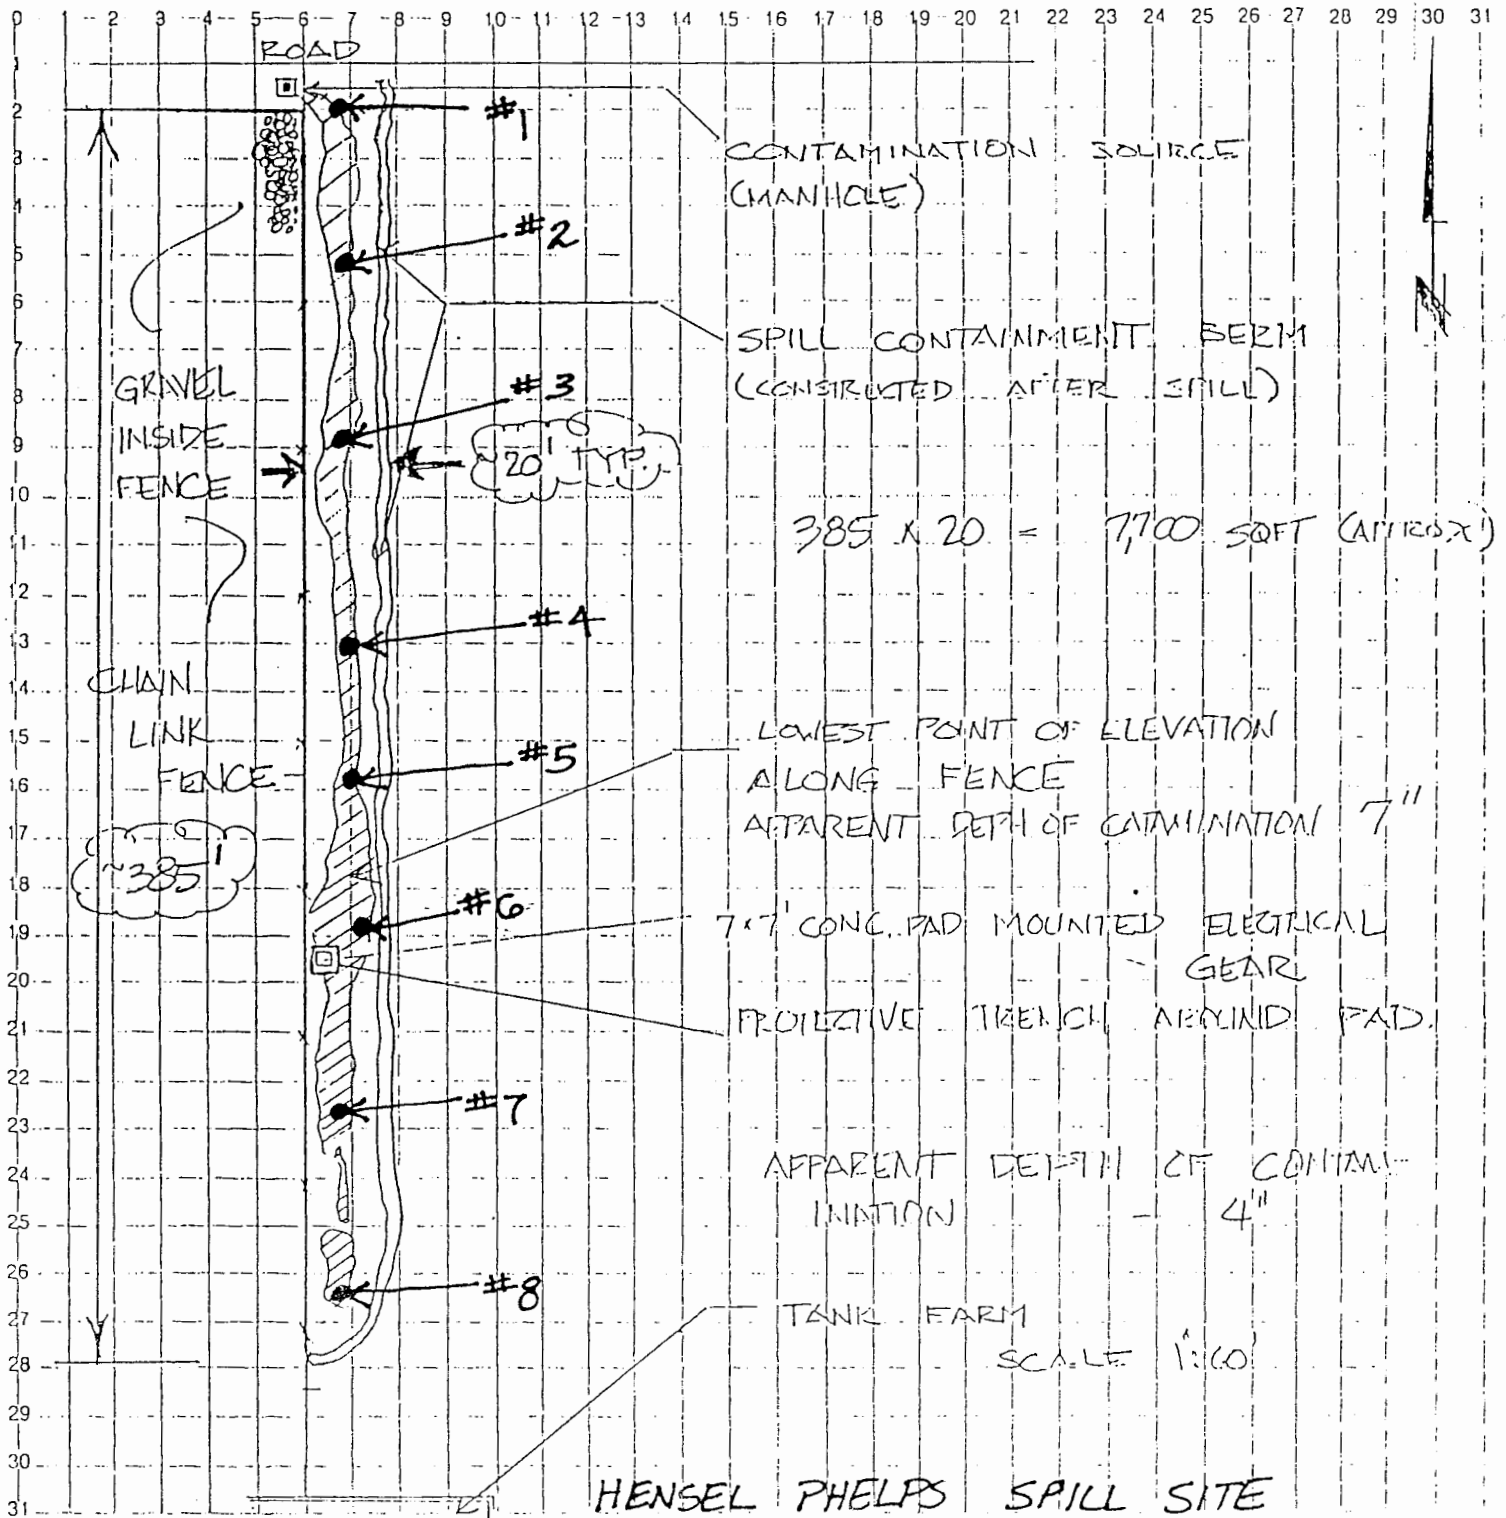 0 1 2 3 4 5 6 7 8 9 10 11 12 13 14 15 16 17 18 19 20 21 22 23 24 25 26 27 28 29 30 31
ROAD
1
2
3
4
5
6
7
8
9
10
11
12
13
14
15
16
17
18
19
20
21
22
23
24
25
26
27
28
29
30
31
#1
CONTAMINATION SOURCE
(MANHOLE)
#2
SPILL CONTAINMENT BERM
(CONSTRUCTED AFTER SPILL)
GRAVEL
INSIDE
FENCE
#3
~20' TYP.
385 X 20 = 7,700 SQFT (APPROX)
#4
CHAIN
LINK
FENCE
#5
LOWEST POINT OF ELEVATION
ALONG FENCE
APPARENT DEPH OF 7"
~385'
#6
7x7' CONC. PAD MOUNTED ELECTRICAL
GEAR
PROTECTIVE TRENCH AROUND PAD.
#7
APPARENT DEPTH OF CONTAM-
INATION - 4"
#8
TANK FARM
SCALE
HENSEL PHELPS SPILL SITE